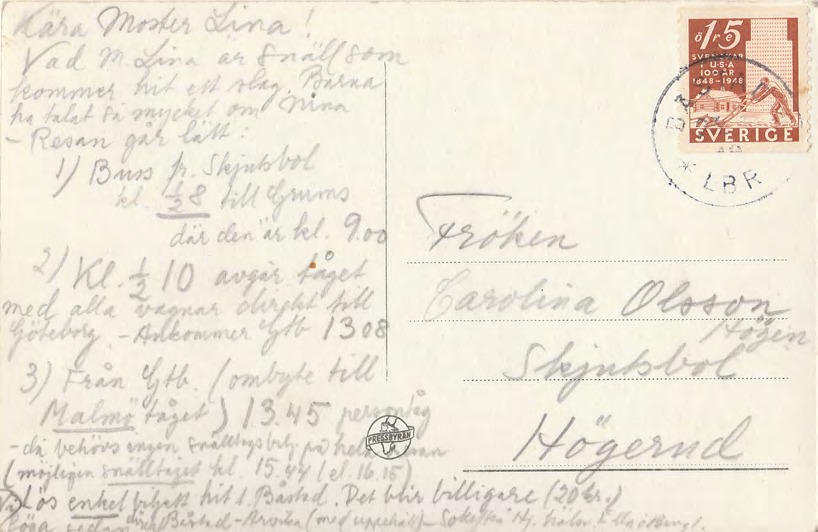 Kära Moster Lina!
Vad M. Lina är snäll som
kommer hit ett slag. Barna
ha talat så mycket om Nina
- Resan går lätt:
1) Buss fr. Skjutsbol
kl. ½8 till Grums
där den är kl. 9.00
2) Kl. ½ 10 avgår tåget
med alla vagnar direkt till
Göteborg. - Ankommer Gtb 13 08
3) Från Gtb. (ombyte till
Malmö tåget) 13.45 persontåg
- då behövs ingen snälltågsbilj. på hela
(möjligen snälltåget kl. 15.44 (el. 16.15)
Lös enkel biljett hit t. Båstad. Det blir billigare (20 kr.)
sedan Båstad - Arvika (med uppehåll)
PRESSBYRÅN
15 öre
SVENSKAR
I U.S.A
100 ÅR
1848-1948
SVERIGE
* LBR
Fröken
Carolina Olsson
Högen
Skjutsbol
Högerud